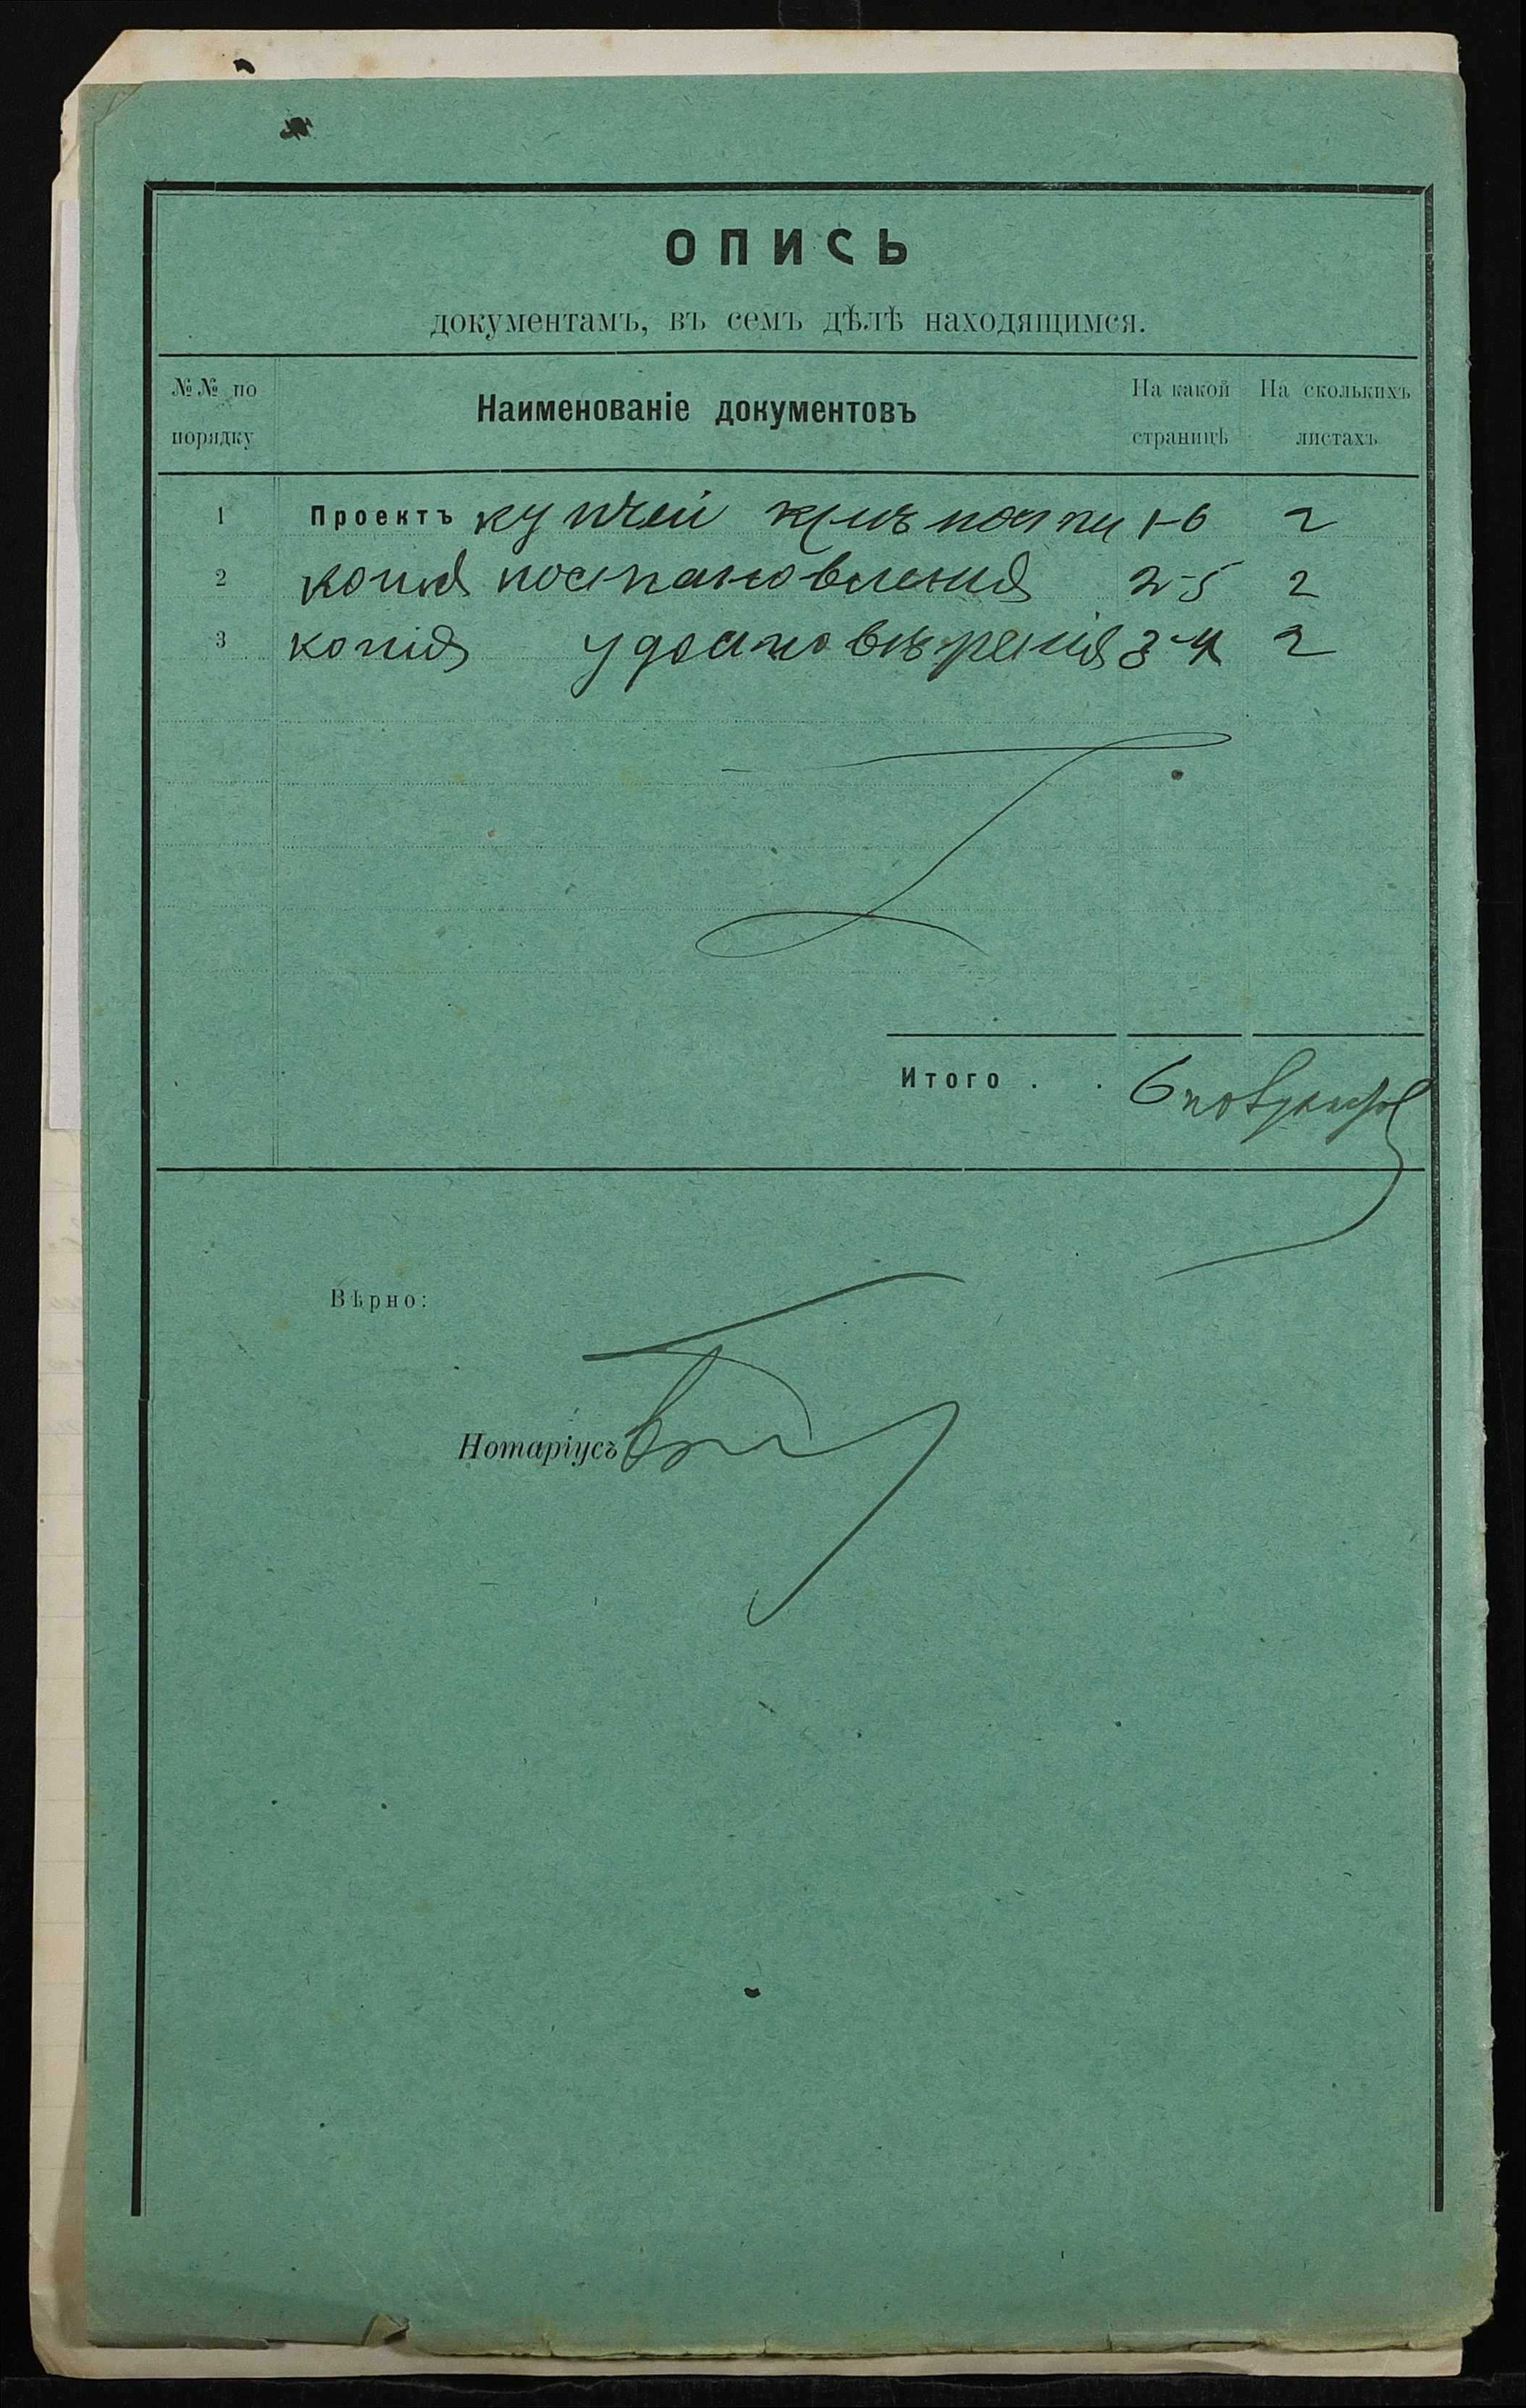 ОПИСЬ
документамъ, въ семъ дѣлѣ находящимся.
№№ по порядку
Наименованіе документовъ
На какой страницѣ
На сколькихъ листахъ
1 Проектъ купчей крѣпости 1-6 2
2 копія постановленія 2-5 2
3 копія удостовѣренія 3-4 2
Итого . . 6
Вѣрно:
Нотаріусъ